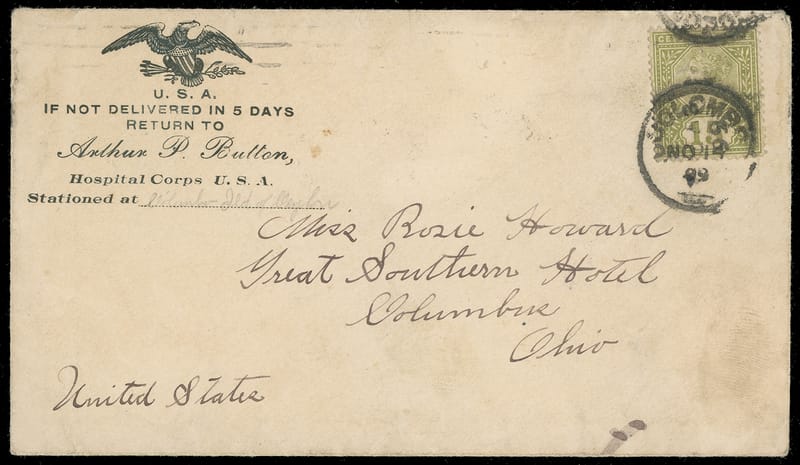 U. S. A.
IF NOT DELIVERED IN 5 DAYS
RETURN TO
Arthur P. Button,
Hospital Corps U. S. A.
Stationed at Colombo Isld of Ceylon
Miss Rosie Howard
Great Southern Hotel
Columbus
Ohio
United States
CE
COLOMBO
NO 18
99